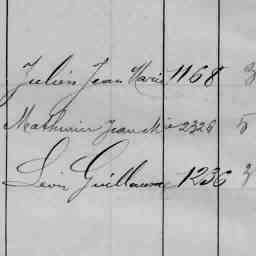 Julien Jean Marie 1168 3
Mathurin Jean M ie 2326 5
Levis Guillaume 1236 3